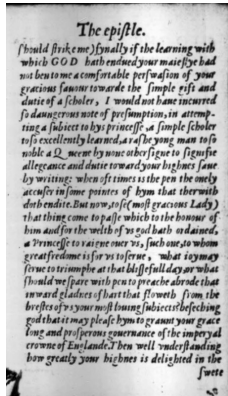 The epistle.
should strike me) fynally if the learning with
which GOD hath endued your maiestye had
not ben to me a comfortable perswasion of your
gracious fauour towarde the simple gift and
dutie of a scholer, I would not haue incurred
so daungerous note of presumption, in attemp-
ting a subiect to hys princesse, a simple scholer
to so excellently learned, a rashe yong man to so
noble a Queene by none other signe to signifie
allegeance and dutie toward your highnes saue
by writing: when oft times is the pen the onely
accuser in some pointes of hym that therwith
doth endite. But now, to se (most gracious Lady)
That thing come to passe which to the honour of
him and for the welth of vs god hath ordained,
a Princesse to raigne ouer vs, such one, to whom
great fredome is for vs to serue, what ioy may
serue to triumphe at that blissefull day, or what
should we spare with pen to preache abrode that
inward gladnes of hart that floweth from the
brestes of vs your most louing subiects? beseching
god that it may please hym to graunt your grace
long and prosperous gouernance of the imperyal
crowne of Englande. Then well vnderstanding
how greatly your highnes is delighted in the
swete